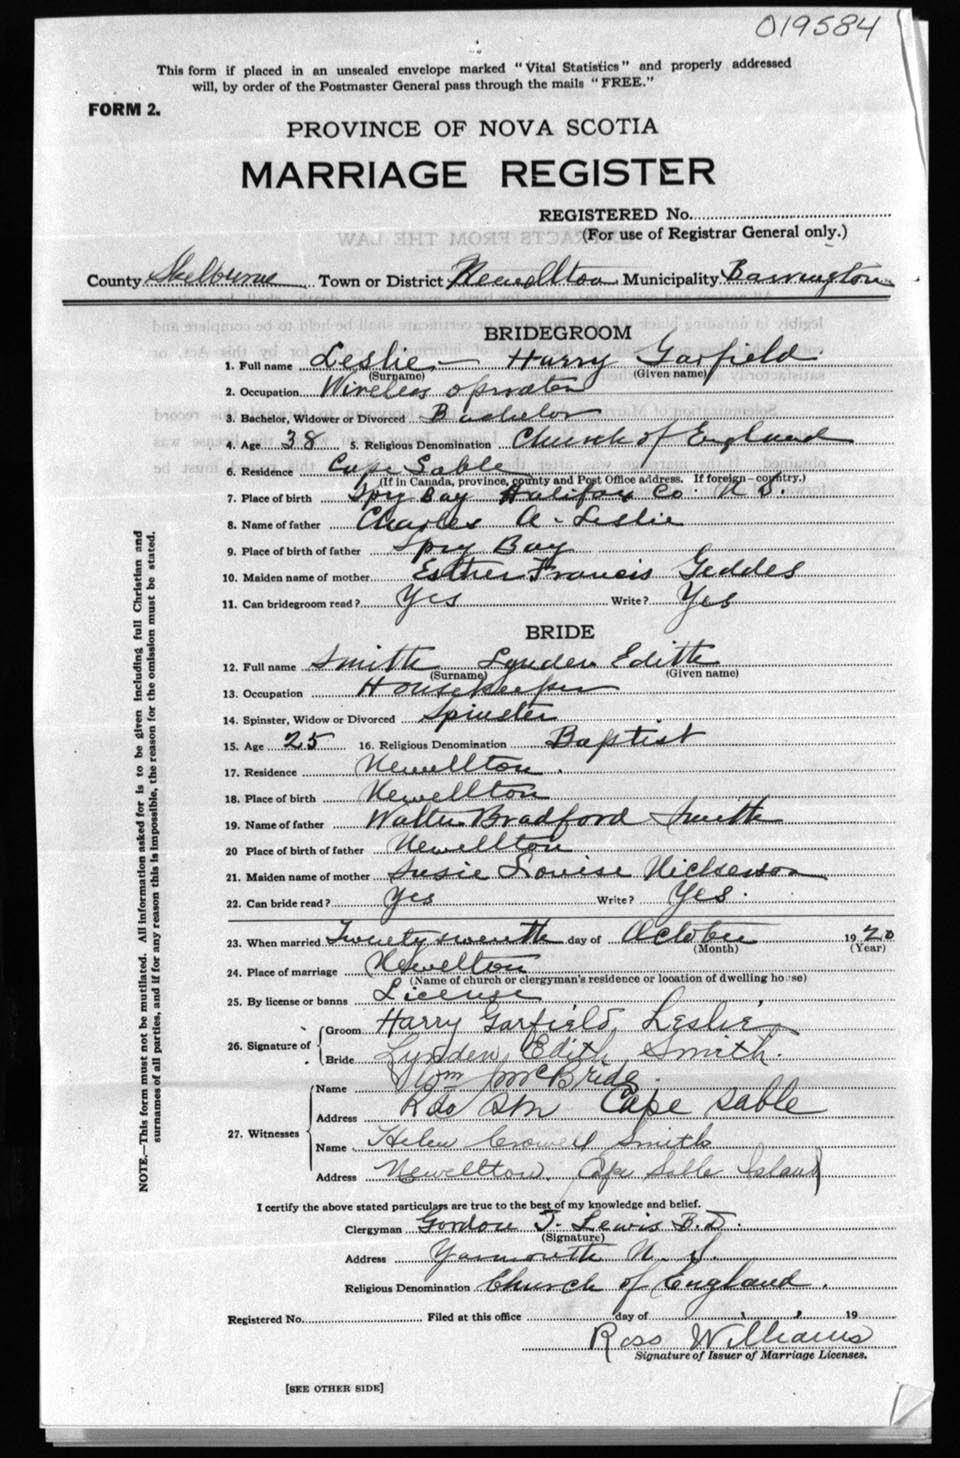 019584
This form if placed in an unsealed envelope marked "Vital Statistics" and properly addressed
will, by order of the Postmaster General pass through the mails "FREE."
FORM 2.
PROVINCE OF NOVA SCOTIA
MARRIAGE REGISTER
REGISTERED No.
(For use of Registrar General only.)
EXTRACTS FROM THE LAW
County Shelburne Town or District Newellton Municipality Barrington
BRIDEGROOM
1. Full name Leslie - Harry Garfield
(Surname) (Given name)
2. Occupation Wireless operator
3. Bachelor, Widower or Divorced Bachelor
4. Age 38 5. Religious Denomination Church of England
6. Residence Cape Sable
(If in Canada, province, county and Post Office address. If foreign-country.)
7. Place of birth Spry Bay Halifax Co. N S.
8. Name of father Charles A. Leslie
9. Place of birth of father Spry Bay
10. Maiden name of mother Esther Francis Geddes
11. Can bridegroom read? Yes Write? Yes
BRIDE
12. Full name Smith Lynden Edith
(Surname) (Given name)
13. Occupation Housekeeper
14. Spinster, Widow or Divorced Spinster
15. Age 25 16. Religious Denomination Baptist
17. Residence Newellton.
18. Place of birth Newellton
19. Name of father Walter Bradford Smith
20 Place of birth of father Newellton
21. Maiden name of mother Susie Louise Nickerson
22. Can bride read? Yes Write? Yes.
23. When married Twenty seventh day of October 1920
(Month) (Year)
24. Place of marriage Newellton
(Name of church or clergyman's residence or location of dwelling house)
25. By license or banns License
26. Signature of Groom Harry Garfield Leslie
Bride Lynden Edith Smith.
27. Witnesses Name Wm McBride
Address Rdo Stn Cape Sable
Name Helen Crowell Smith
Address Newellton. Cape Sable Island
I certify the above stated particulars are true to the best of my knowledge and belief.
Clergyman Gordon T. Lewis B.D.
(Signature)
Address Yarmouth N. S.
Religious Denomination Church of England.
Registered No. Filed at this office day of 19
Ross Williams
Signature of Issuer of Marriage Licenses.
[SEE OTHER SIDE]
NOTE.—This form must not be mutilated. All information asked for is to be given including full Christian and
surnames of all parties, and if for any reason this is impossible, the reason for the omission must be stated.